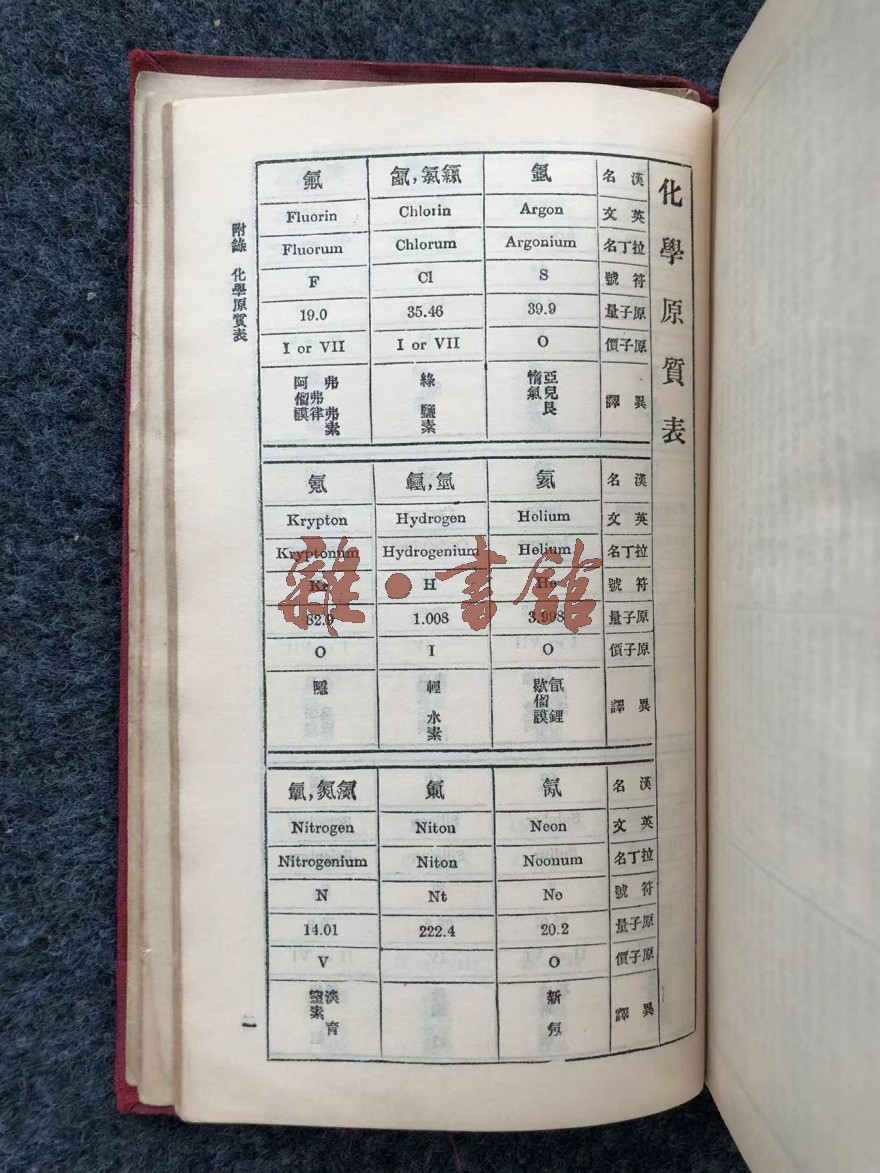 化學原質表
漢名 氬 氯氣 氟
英文 Argon Chlorin Fluorin
拉丁名 Argonium Chlorum Fluorum
符號 S Cl F
原子量 39.9 35.46 19.0
原子價 O I or VII I or VII
異譯 亞兒艮 惰氣 綠 鹽素 弗 弗律 弗素 阿
漢名 氦 氫 氪
英文 Helium Hydrogen Krypton
拉丁名 Helium Hydrogenium Kryptonum
符號 He H
原子量 3.998 1.008 82.9
原子價 O I O
異譯 輕 水素
漢名 氖 氮
英文 Neon Niton Nitrogen
拉丁名 Noonum Niton Nitrogenium
符號 Ne Nt N
原子量 20.2 222.4 14.01
原子價 O V
異譯 新 淡 育 窒素
附錄 化學原質表
二
雜·書館